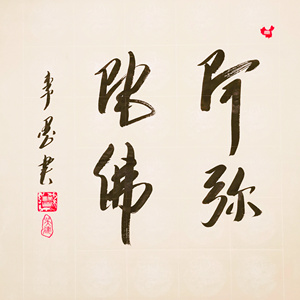 阿弥
陀佛